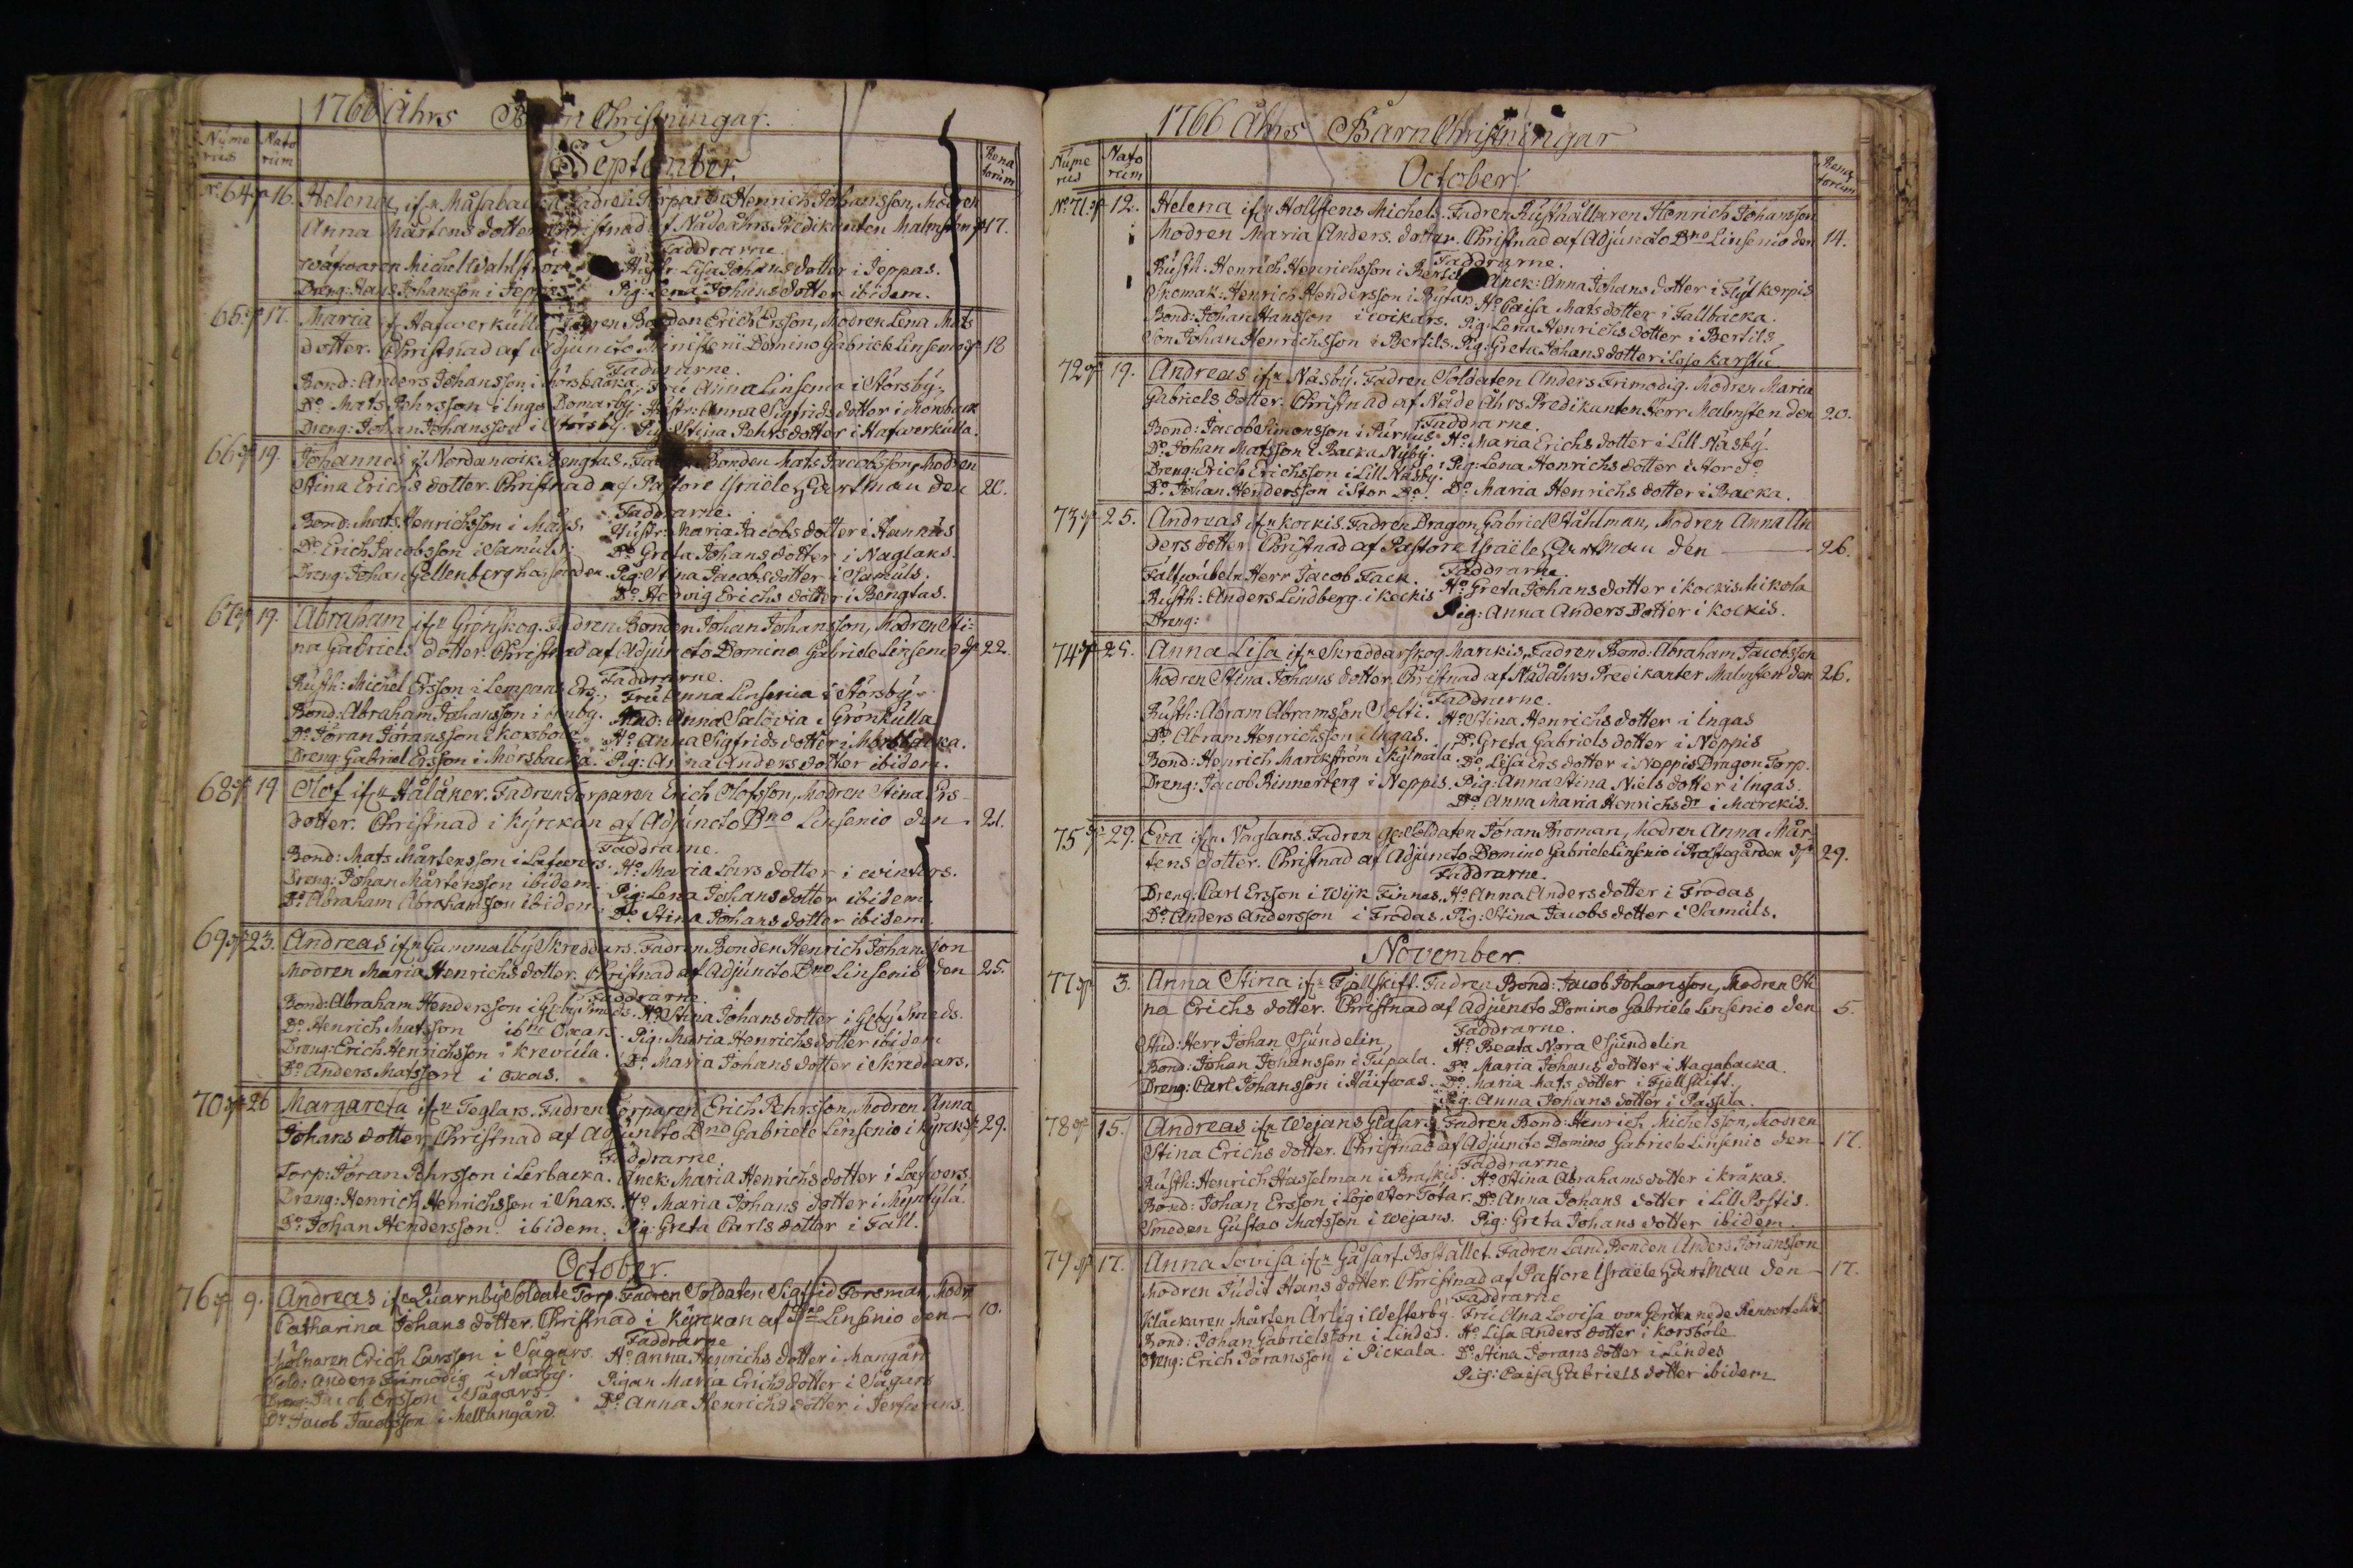 1766 Åhrs Barn Christningar.
Nume
rus
Nato
rum
September.
Rena
torum
No 64. 16. Helena, ifrn Måsabacka Fadren Torparen Henrich Johansson, Modren
Anna Mårtens dotter Christnad af Nådeåhrs Predikanten Malmsten 17.
Faddrarne
Michel Wahlström Hustr: Lisa Johans dotter i Jeppas.
Dreng: Hans Johansson i Jeppas. Pig: Lena Johans dotter ibidem.
65. 17. Maria if. Hafwerkulla, Fadren Bonden Erich Ersson, Modren Lena Mats
dotter. Christnad af Adjuncto Ministeri Domino Gabriele Linsenio 18
Faddrarne.
Bond: Anders Johansson i Morsbacka, Fru Anna Linsenia i Störsby,
Do Mats Pehrsson i Ingo Bomarby. Hustr: Anna Sigfrids dotter i Morsback
Dreng: Johan Johansson i Störsby. Pig: Stina Pehrs dotter i Hafwerkulla.
66 19. Johannes if. Nordanwik Bengtas. Fadren Bonden Mats Jacobsson, Modren
Stina Erichs dotter. Christnad af Pastore Israële Hartman den 20.
Faddrarne.
Bond: Mats Henrichsson i Måss. Hustr: Maria Jacobs dotter i Hannus
Do Erich Jacobsson i Samuls. Do Greta Johans dotter i Naglans.
Dreng: Johan Gellenberg Pig: Stina Jacobs dotter i Samuls.
Do Hedvig Erichs dotter i Bengtas.
67 19. Abraham ifrn Grönskog. Fadren Bonden Johan Johansson, Modren Sti-
na Gabriels dotter. Christnad af Adjuncto Domino Gabriele Linsenio 22.
Faddrarne.
Rusth: Michel Ersson i Lempans Fru Anna Linsenia i Störsby.
Bond: Abraham Johansson i Anby. Mad: Anna Salovia i Grönkulla
Do Jöran Joransson i Korsbole. Ho Anna Sigfrids dotter i Morsbacka.
Dreng: Gabriel Ersson i Morsbacka. Pig: Anna Anders dotter ibidem.
68 19 Olof ifrn Hålåker. Fadren Torparen Erich Olofsson, Modren Stina Ers-
dotter. Christnad i Kyrckan af Adjuncto Dno Linsenio den 21.
Faddrarne.
Bond: Mats Mårtensson i Lafwers. Ho Maria Lars dotter i winters.
Dreng: Johan Mårtensson ibidem. Pig: Lena Johans dotter ibidem.
Do Abraham Abrahamsson ibidem. Do Stina Johans dotter ibidem.
69 23. Andreas ifrn Gammalby Skreddars. Fadren Bonden Henrich Johansson
Modren Maria Henrichs dotter. Christnad af Adjuncto Dno Linsenio den 25.
Faddrarne.
Bond: Abraham Hendersson i Gieby Smeds. Ho Stina Johans dotter i Gieby Smeds.
Do Henrich Matsson Oxars. Pig: Maria Henrichs dotter ibidem
Dreng: Erich Henrichsson i Krevula. Do Maria Johans dotter i Skreddars.
Do Anders Matsson i Oxas.
70 26 Margareta ifrn Teglars. Fadren Torparen Erich Pehrsson, Modren Anna
Johans dotter, Christnad af Adjuncto Dno Gabriele Linsenio i kyrck 29.
Faddrarne
Torp: Jöran Pehrsson i Lerbacka. Enck: Maria Henrichs dotter i Lafwers.
Dreng: Henrich Henrichsson i Snars. Ho Maria Johans dotter i
Do Johan Hendersson ibidem. Pig: Greta Carls dotter i Fall.
October.
76 9. Andreas if. Quarnby Soldate Torp. Fadren Soldaten Sigfrid Forsman, Modr
Catharina Johans dotter. Christnad i Kyrckan af Dno Linsenio den 10.
Faddrarne
Mölnaren Erich Larsson i Sågars. Ho Anna Henrichs dotter i Mangård
Sold: Anders Frimodig i Näsby. Pigan Maria Erichs dotter i Sågars
Dreng: Jacob Ersson i Sågars. Do Anna Henrichs dotter i
Do Jacob Jacobsson i Mellangård.
1766 Åhrs Barn Christningar
Nume
rus
Nato
rum
October
Rena
torum
No 71. 12. Helena ifrn Hollstens Michels. Fadren Rusthållaren Henrich Johansson
Modren Maria Anders dotter. Christnad af Adjuncto Dno Linsenio den 14.
Faddrarne.
Rusth. Henrich Henrichsson i Bertils Enck: Anna Johans dotter i
Skomak: Henrich Hendersson i Ho Caisa Mats dotter i Fallbacka.
Bond: Johan Hansson i wikars. Pig: Lena Henrichs dotter i Bertils
Son Johan Henrichsson i Bertils. Pig: Greta Johans dotter i Lojo karstu
72 19. Andreas ifrn Näsby. Fadren Soldaten Anders Frimodig. Modren Maria
Gabriels dotter. Christnad af Nåde Åhrs Predikanten Herr Malmsten den 20.
Faddrarne.
Bond: Jacob Simonsson i Purnus. Ho Maria Erichs dotter i Lill Näsby.
Do Johan Matsson i Backa Nyby. Pig: Lena Henrichs dotter i Stor Do
Dreng: Erich Erichsson i Lill Näsby.
Do Johan Hendersson i Stor Do. Do Maria Henrichs dotter i Backa.
73 25. Andreas ifrn Kockis. Fadren Dragon Gabriel Ståhlman, Modren Anna An
ders dotter Christnad af Pastore Israële Hartman den 26.
Faddrarne
Faltwäbeln Herr Jacob Fack. Ho Greta Johans dotter i Kockis Mikola
Rusth: Anders Lindberg i Kockis Pig: Anna Anders Dotter i Kockis.
Dreng:
74 25. Anna Lisa ifrn Skreddarskog Marckis, Fadren Bond: Abraham Jacobsson
Modren Stina Johans dotter, Christnad af Nådåhrs Predikanten Malmsten den 26.
Faddrarne.
Rusth: Abram Abramsson Solti. Ho Stina Henrichs dotter i Ingas
Do Abram Henrichsson i Ingas. Do Greta Gabriels dotter i Noppis
Bond: Henrich Marckström i Kylmala. Do Lisa Ers dotter i Noppis Dragon Torp.
Dreng: Jacob Rinnerberg i Noppis. Pig: Anna Stina Niels dotter i Ingas.
Do Anna Maria Henrichs dr i Marckis.
75 29. Eva ifrn Naglans. Fadren Soldaten Jöran Broman, Modren Anna Mår-
tens dotter. Christnad af Adjuncto Domino Gabriele Linsenio i Prästegården 29.
Faddrarne.
Dreng. Carl Ersson i Wijk Finnas. Ho Anna Anders dotter i Frodas
Do Anders Andersson i Frodas. Pig: Stina Jacobs dotter i Samuls.
November.
77 3. Anna Stina if. Fjällskift. Fadren Bond: Jacob Johansson, Modren Sti
na Erichs dotter. Christnad af Adjuncto Domino Gabriele Linsenio den 5.
Faddrarne.
Stud: Herr Johan Sjundelin, Ho Beata Nora Sjundelin
Bond: Johan Johansson i Tupala. Do Maria Johans dotter i Hagabacka
Dreng: Carl Johansson i Do Maria Mats dotter i Fjellskift.
Pig: Anna Johans dotter i Passila.
78 15. Andreas ifrn Wejans Glasars Fadren Bond: Henrich Michelsson, Modren
Stina Erichs dotter. Christnad af Adjuncto Domino Gabriele Linsenio den 17.
Faddrarne.
Rusth: Henrich Hasselman i Braskis. Ho Stina Abrahams dotter i Kråkas.
Bond: Johan Ersson i Lojo Stor Totar. Do Anna Johans dotter i Lill Postis.
Smeden Gustav Matsson i Wejans. Pig: Greta Johans dotter ibidem.
79 17. Anna Lovisa ifrn Gåsarf Bostället. Fadren Land Bonden Anders Joransson
Modren Judit Hans dotter. Christnad af Pastore Israële Hartman den 17.
Faddrarne
Klåckaren Mårten Årlig i Westerby. Fru Ana Lovisa von
Bond: Johan Gabrielsson i Lindes. Ho Lisa Anders dotter i Korsbole
Dreng: Erich Joransson i Pickala. Do Stina Jorans dotter i Lindes
Pig: Caisa Gabriels dotter ibidem